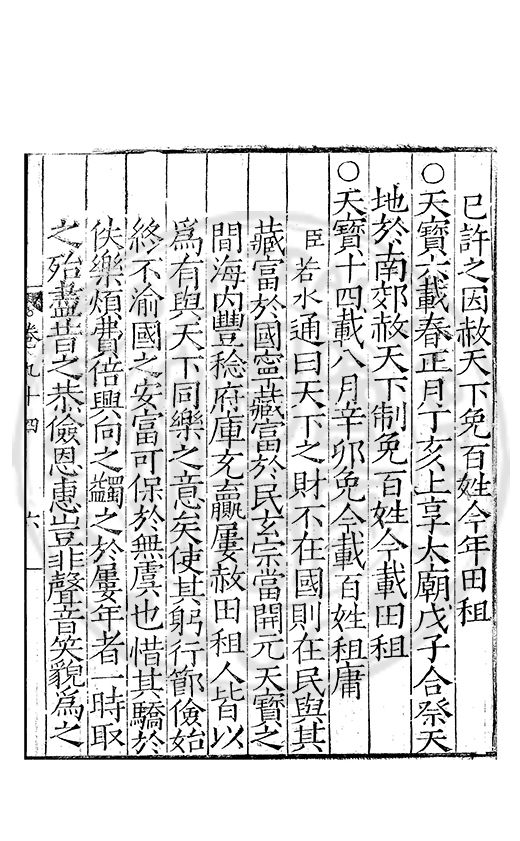 已許之因赦天下免百姓今年田租
○天寶六載春正月丁亥上享太廟戊子合祭天
地於南郊赦天下制免百姓今載田租
○天寶十四載八月辛卯免今載百姓租庸
臣若水通曰天下之財不在國則在民與其
藏富於國寧藏富於民玄宗當開元天寶之
間海内豐稔府庫充贏屢赦田租人皆以
爲有與天下同樂之意矣使其躬行節儉始
終不渝國之安富可保於無虞也惜其驕於
佚樂煩費倍興向之蠲之於屢年者一時取
之殆盡昔之恭儉恩惠豈非聲音笑貌爲之
卷九十四
六